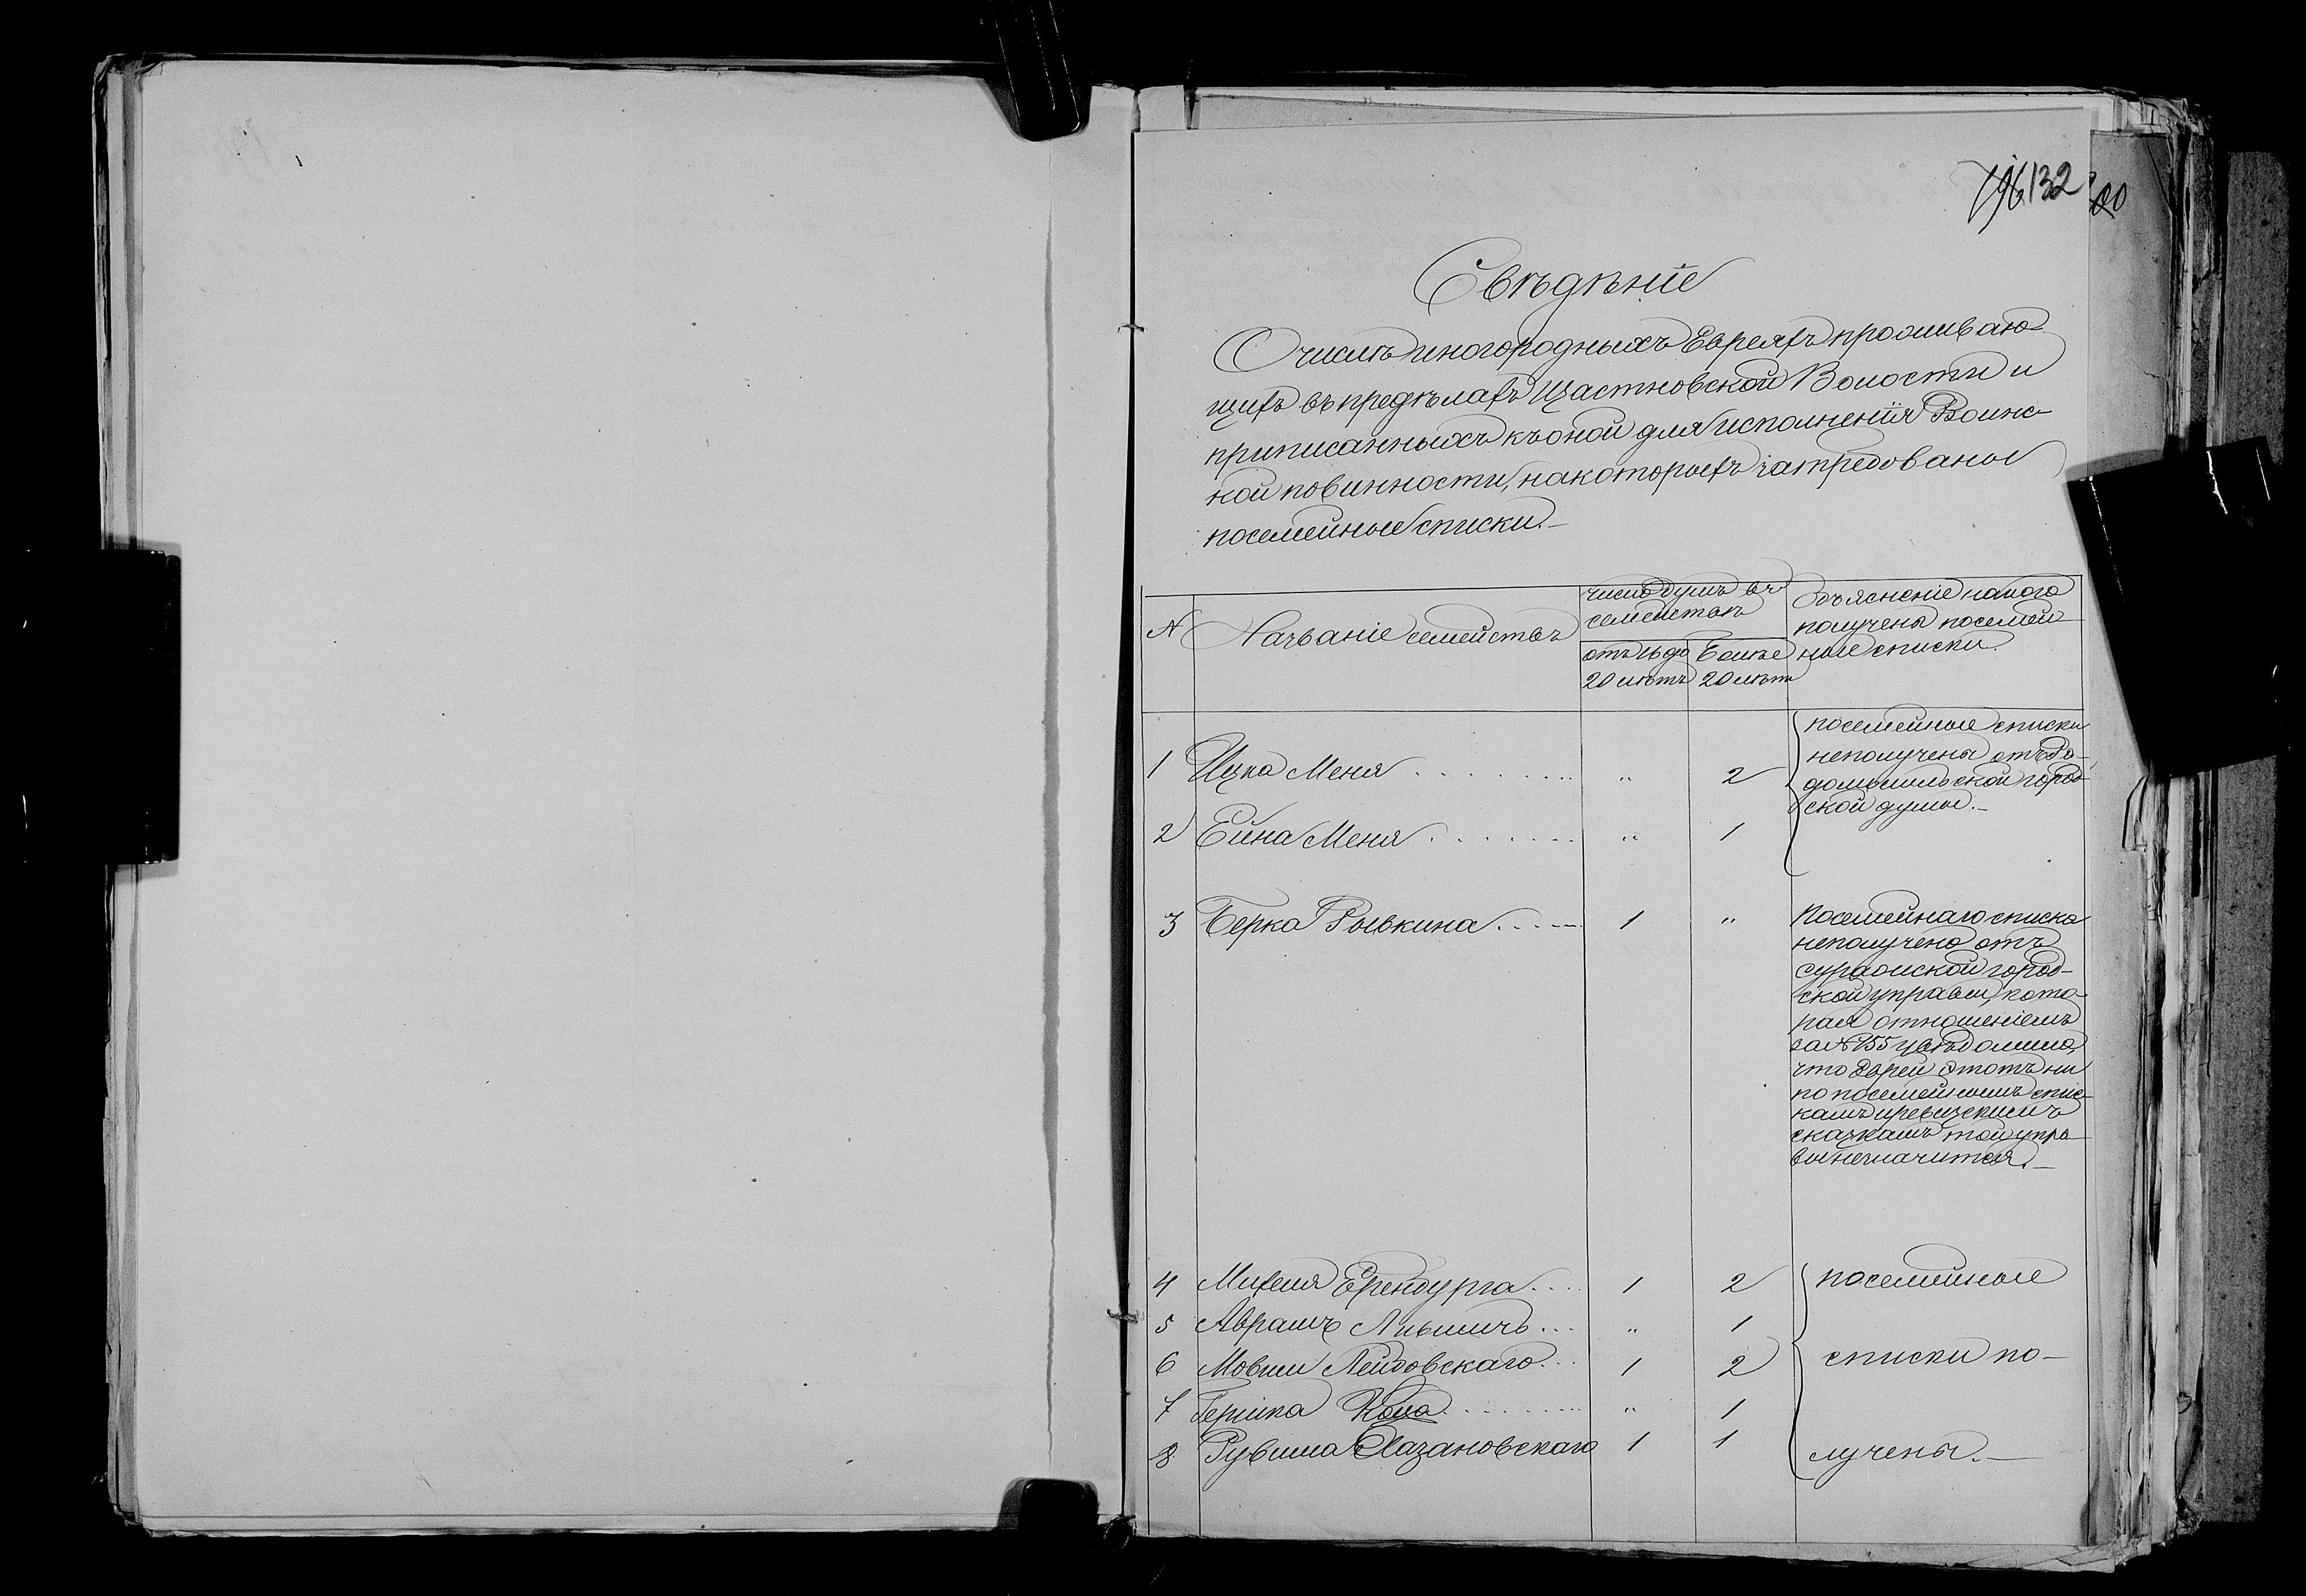 132
Свѣдѣніе
О числѣ иногородныхъ Евреяхъ проживаю-
щихъ въ предѣлахъ Щастновской Волости и
приписанныхъ къ оной для исполненія Воинс-
кой повинности, на которыхъ затребованы
посемейные списки.
N
Названіе семействъ
число душъ въ
семействѣ
отъ 16 до
20 лѣтъ
Болѣе
20 лѣтъ
Объясненіе на кого
получены посемей-
ные списки.
1 Ицка Меня . . . . . . . „ 2
посемейные списки
неполучены отъ Ра-
домысльской город-
ской думы.
2 Ейна Меня . . . . . . . „ 1
3 Берка Рывкина . . . . 1 „
Посемейнаго списка
неполучено отъ
Суражской город-
ской управы, кото-
рая отношеніемъ
за № 155 увѣдомила,
что Еврей этотъ ни
по посемейнымъ спис-
камъ и ревизскимъ
сказкамъ той упра-
вы незначится.
4 Михеля Еренбурга . . . 1 2
5 Абрамъ . . . „ 1
6 Мовши Лейбовскаго . . . 1 2
7 Гершка . . . . . . . „ 1
8 Рувима Хазановскаго 1 1
посемейные
списки по-
лучены.